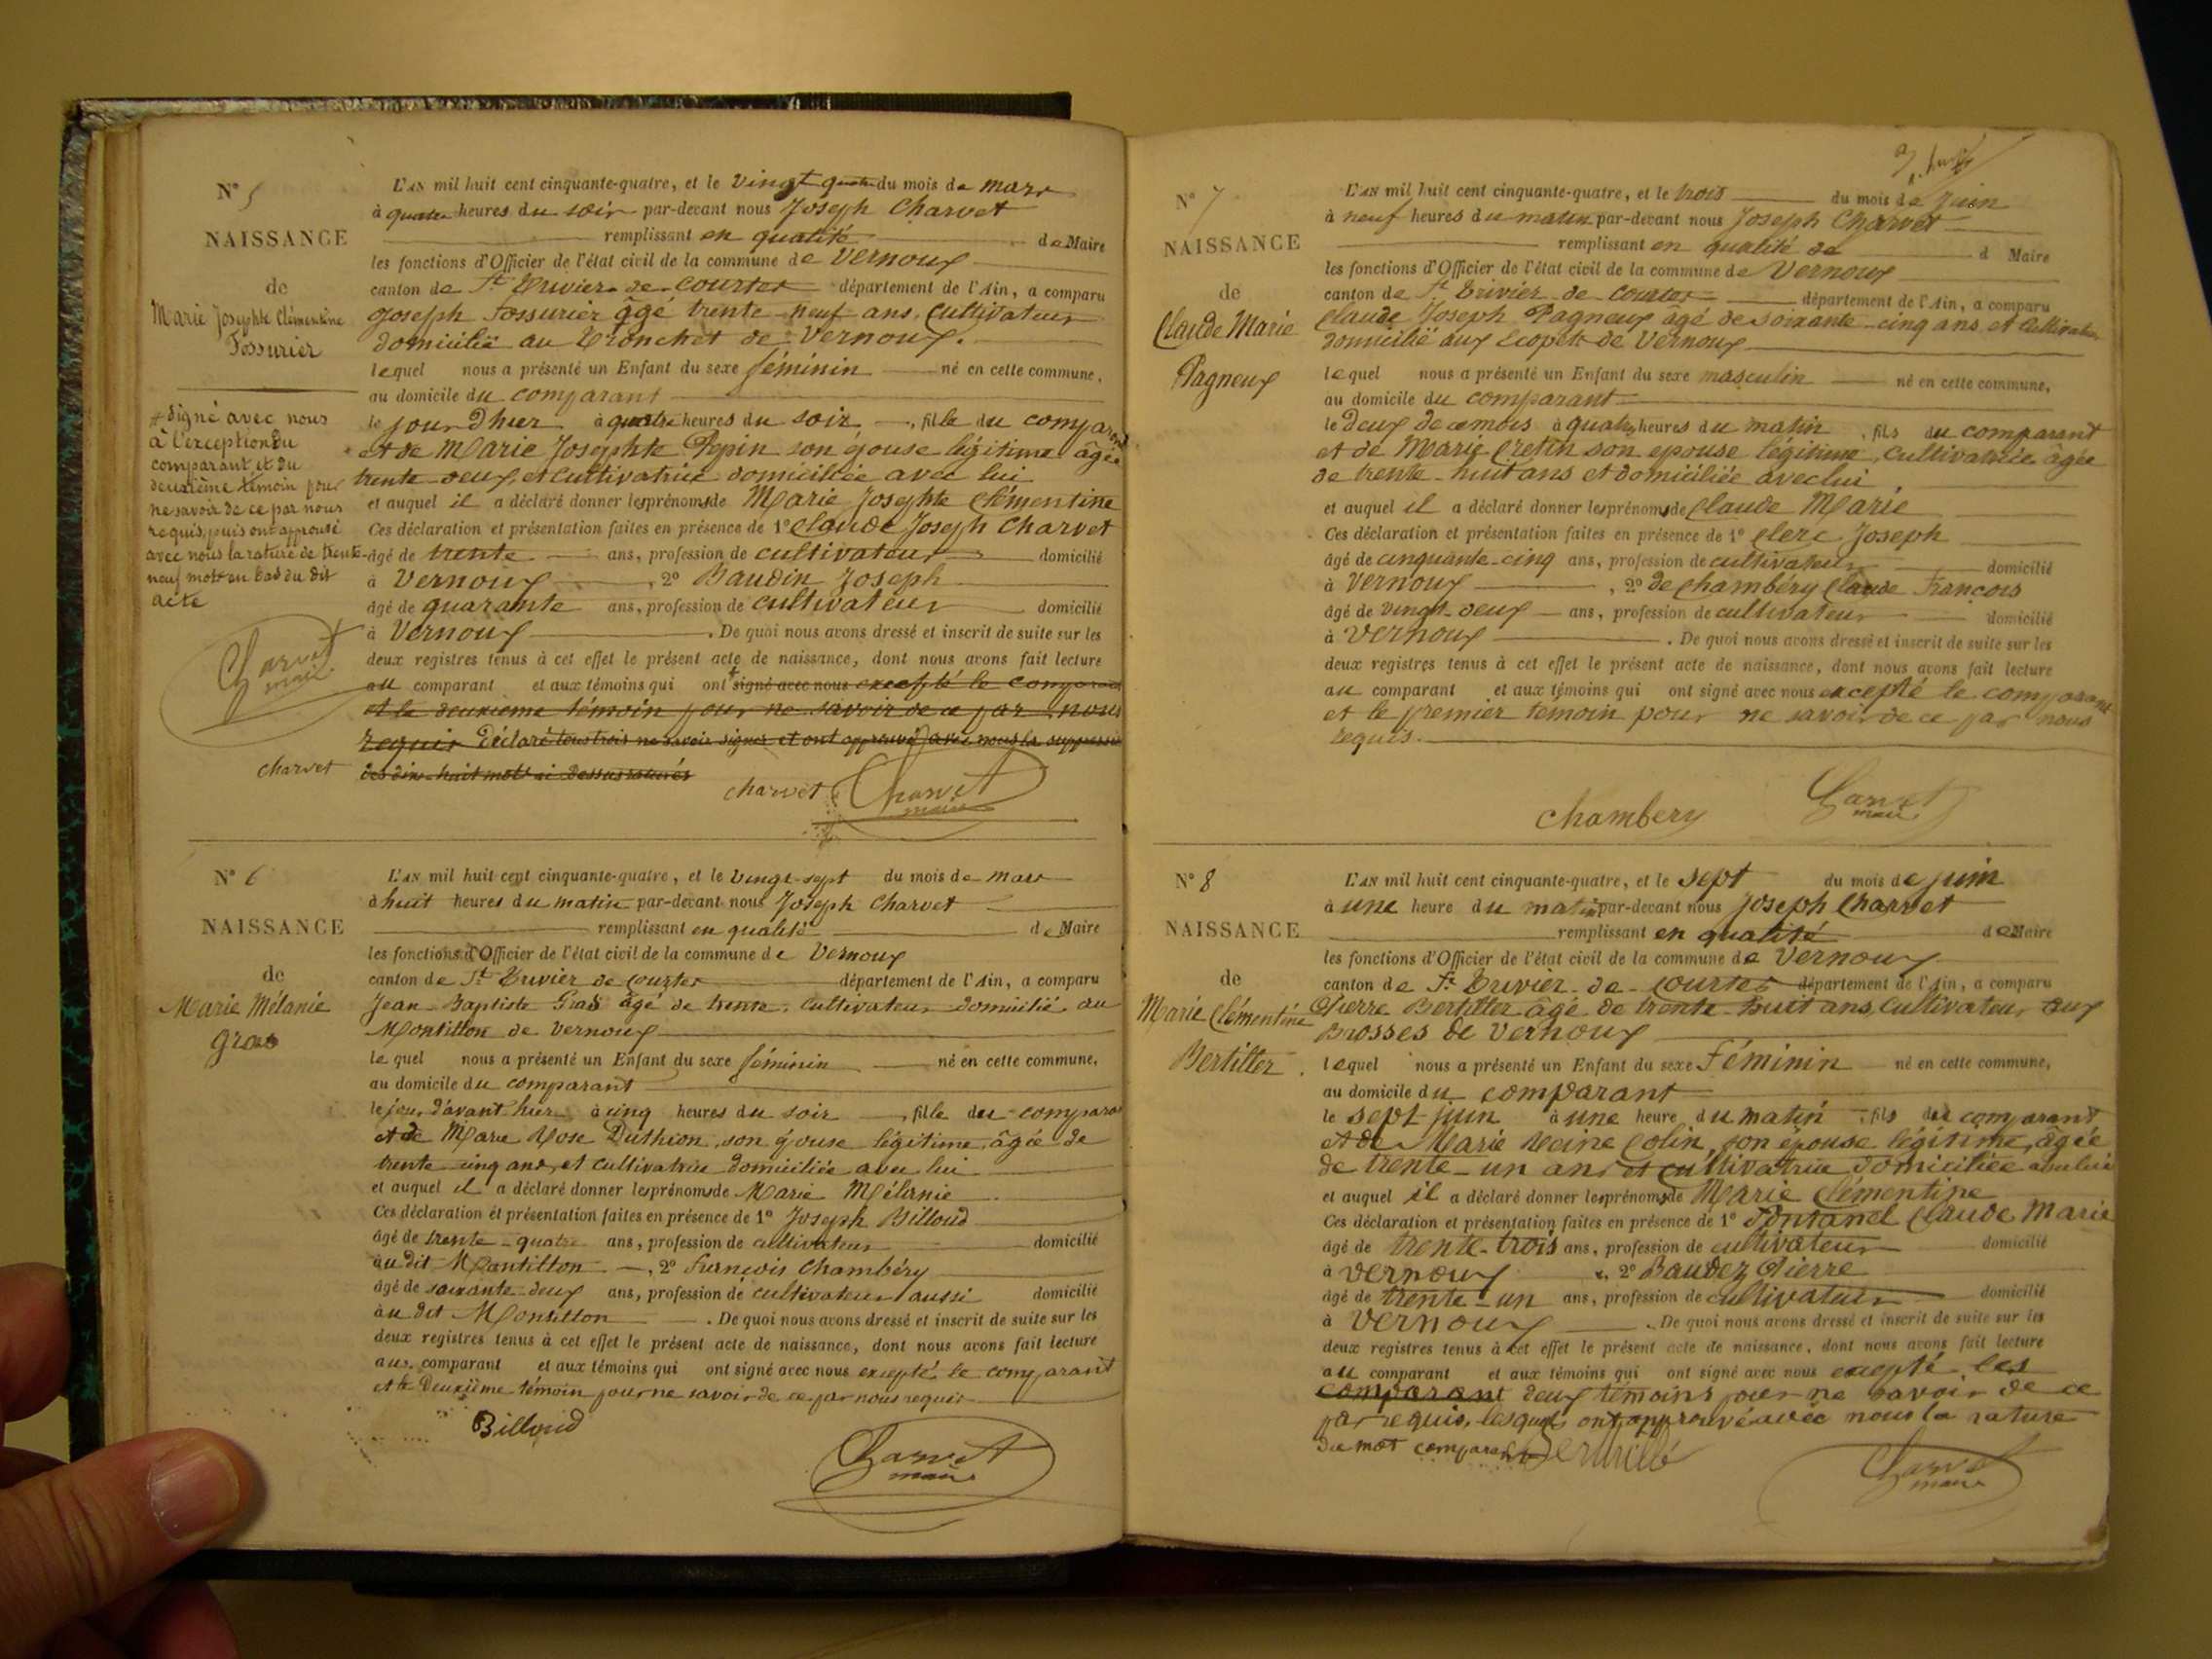 N° 5
NAISSANCE
de
Marie Josephte Clémentine
Fossurier
L'AN mil huit cent cinquante-quatre, et le vingt quatre du mois de mars
à quatre heures du soir par-devant nous Joseph Charvet
remplissant en qualité de Maire
les fonctions d'Officier de l'état civil de la commune de Vernoux
canton de St Trivier de Courtes département de l'Ain, a comparu
Joseph Fossurier âgé trente-neuf ans, cultivateur
domicilié au Tronchet de Vernoux.
lequel nous a présenté un Enfant du sexe féminin né en cette commune,
au domicile du comparant
le jour d'hier à quatre heures du soir, fille du comparant
et de Marie Josephte Pepin son épouse légitime âgée
trente deux, et cultivatrice domiciliée avec lui
et auquel il a déclaré donner les prénoms de Marie Josephte Clémentine
Ces déclaration et présentation faites en présence de 1° Claude Joseph Charvet
âgé de trente ans, profession de cultivateur domicilié
à Vernoux, 2° Baudin Joseph
âgé de quarante ans, profession de cultivateur domicilié
à Vernoux. De quoi nous avons dressé et inscrit de suite sur les
deux registres tenus à cet effet le présent acte de naissance, dont nous avons fait lecture
au comparant et aux témoins qui ont signé avec nous excepté le comparant
et le deuxième témoin pour ne savoir de ce par nous
requis Déclaré tous trois ne savoir signer et ont approuvé avec nous la suppression
des dix-huit mots ci dessus raturés
charvet Charvet
maire
signé avec nous
à l'exception du
comparant et du
deuxième témoin pour
ne savoir de ce par nous
requis, puis ont approuvé
avec nous la rature de trente-
neuf mots en bas du dit
acte
Charvet
maire
charvet
N° 6
NAISSANCE
de
Marie Mélanie
Gras
L'AN mil huit cent cinquante-quatre, et le vingt-sept du mois de mars
à huit heures du matin par-devant nous Joseph Charvet
remplissant en qualité de Maire
les fonctions d'Officier de l'état civil de la commune de Vernoux
canton de St Trivier de Courtes département de l'Ain, a comparu
Jean-Baptiste Gras âgé de trente, cultivateur domicilié au
Montillon de Vernoux
lequel nous a présenté un Enfant du sexe féminin né en cette commune,
au domicile du comparant
le jour d'avant hier à cinq heures du soir, fille du comparant
et de Marie Rose Duthion, son épouse légitime, âgée de
trente cinq ans, et cultivatrice domiciliée avec lui
et auquel il a déclaré donner les prénoms de Marie Mélanie
Ces déclaration et présentation faites en présence de 1° Joseph Billoud
âgé de trente-quatre ans, profession de cultivateur domicilié
au dit Montillon, 2° François Chambéry
âgé de soixante-deux ans, profession de cultivateur aussi domicilié
à au dit Montillon. De quoi nous avons dressé et inscrit de suite sur les
deux registres tenus à cet effet le présent acte de naissance, dont nous avons fait lecture
aux comparant et aux témoins qui ont signé avec nous excepté le comparant
et le Deuxième témoin pour ne savoir de ce par nous requis
Billoud
Charvet
maire
N° 7
NAISSANCE
de
Claude Marie
Pagneux
L'AN mil huit cent cinquante-quatre, et le trois du mois de juin
à neuf heures du matin par-devant nous Joseph Charvet
remplissant en qualité de d Maire
les fonctions d'Officier de l'état civil de la commune de Vernoux
canton de St Trivier de Courtes département de l'Ain, a comparu
Claude Joseph Pagneux âgé de soixante-cinq ans et cultivateur
domicilié aux Ecopets de Vernoux
lequel nous a présenté un Enfant du sexe masculin né en cette commune,
au domicile du comparant
le Deux de ce mois à quatre heures du matin, fils du comparant
et de Marie Cretin son épouse légitime, cultivatrice âgée
de trente-huit ans et domiciliée avec lui
et auquel il a déclaré donner les prénoms de Claude Marie
Ces déclaration et présentation faites en présence de 1° Clerc Joseph
âgé de cinquante-cinq ans, profession de cultivateur domicilié
à Vernoux, 2° de Chambéry Claude François
âgé de vingt-deux ans, profession de cultivateur domicilié
à Vernoux. De quoi nous avons dressé et inscrit de suite sur les
deux registres tenus à cet effet le présent acte de naissance, dont nous avons fait lecture
au comparant et aux témoins qui ont signé avec nous excepté le comparant
et le premier témoin pour ne savoir de ce par nous
requis.
Chambery Charvet
maire
N° 8
NAISSANCE
de
Marie Clémentine
Bertiller.
L'AN mil huit cent cinquante-quatre, et le sept du mois de juin
à une heure du matin par-devant nous Joseph Charvet
remplissant en qualité de Maire
les fonctions d'Officier de l'état civil de la commune de Vernoux
canton de St Trivier de Courtes département de l'Ain, a comparu
Pierre Bertiller âgé de trente-huit ans, cultivateur aux
Brosses de Vernoux
lequel nous a présenté un Enfant du sexe Féminin né en cette commune,
au domicile du comparant
le sept juin à une heure du matin, fils du comparant
et de Marie Reine Colin, son épouse légitime, âgée
de trente-un ans et cultivatrice domiciliée avec lui
et auquel il a déclaré donner les prénoms de Marie Clémentine
Ces déclaration et présentation faites en présence de 1° Fontanel Claude Marie
âgé de trente-trois ans, profession de cultivateur domicilié
à Vernoux, 2° Baudez Pierre
âgé de trente-un ans, profession de cultivateur domicilié
à Vernoux. De quoi nous avons dressé et inscrit de suite sur les
deux registres tenus à cet effet le présent acte de naissance, dont nous avons fait lecture
au comparant et aux témoins qui ont signé avec nous excepté les
comparant deux témoins pour ne savoir de ce
par requis, lesquels ont approuvé avec nous la rature
du mot comparant
Charvet
maire